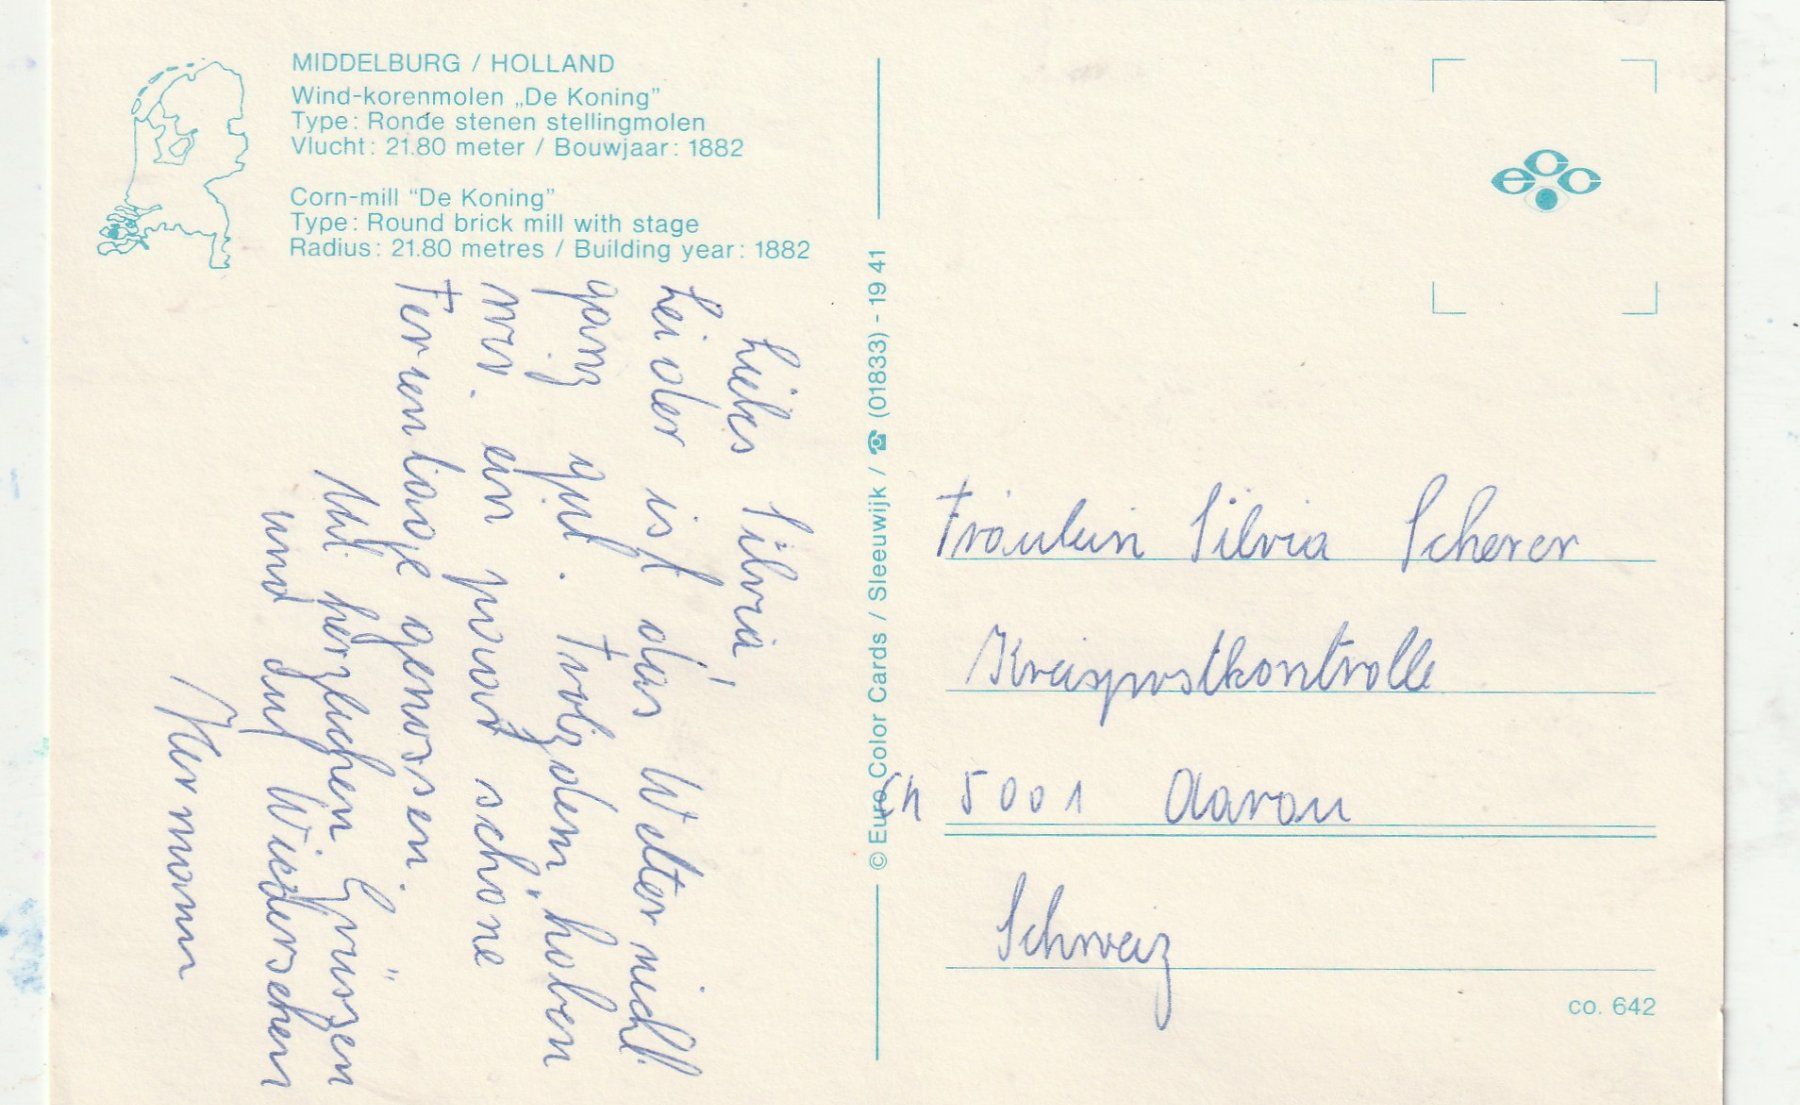 MIDDELBURG / HOLLAND
Wind-korenmolen „De Koning”
Type: Ronde stenen stellingmolen
Vlucht: 21.80 meter / Bouwjaar: 1882
Corn-mill “De Koning”
Type: Round brick mill with stage
Radius: 21.80 metres / Building year: 1882
Liebes Silvia
Leider ist das Wetter nicht
ganz gut. Trotzdem haben
wir ein paar schöne
Ferientage genossen.
Mit herzlichen Grüssen
und auf Wiedersehen
Hermann
© Euro Color Cards / Sleeuwijk / ☎ (01833) - 19 41
ecc
Fräulein Silvia Scherer
Kreispostkontrolle
CH 5001 Aarau
Schweiz
co. 642